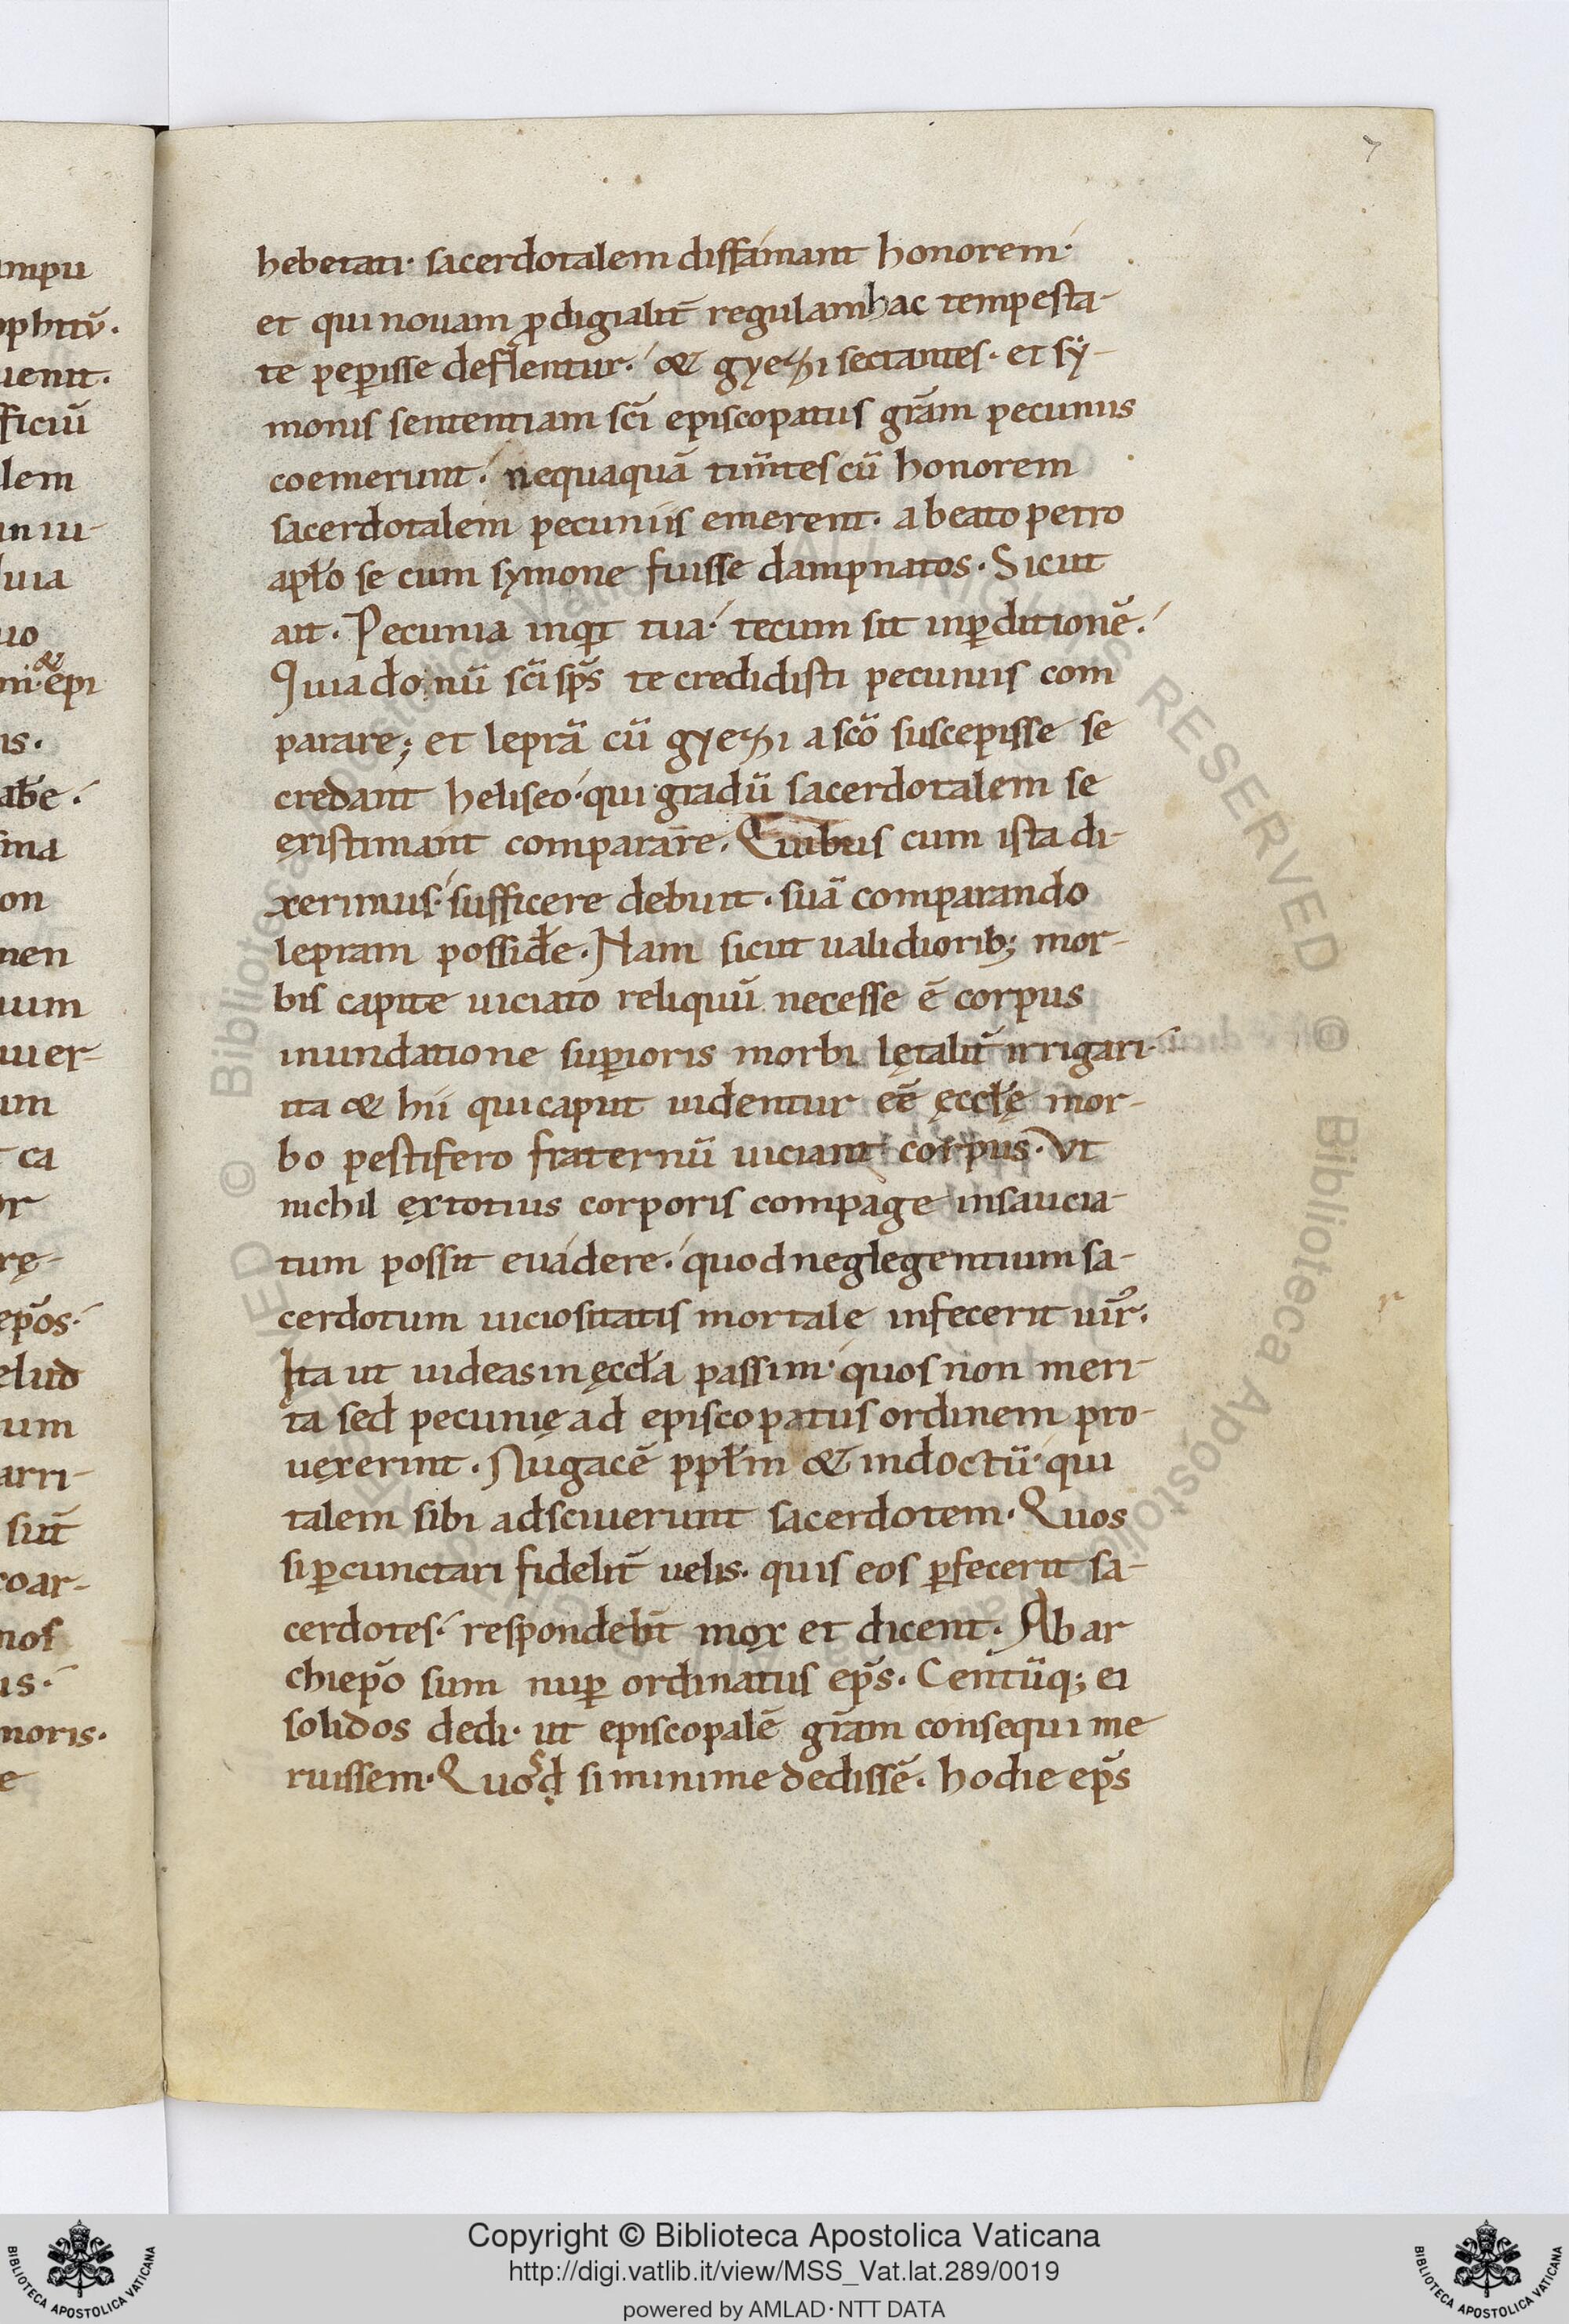 7
hebetati· sacerdotalem diffamant honorem·
et qui nouam ꝓdigialit̄ regulam hac tempesta-
te peꝑisse deflentur· & gyezi sectantes· et sy-
monis sententiam sc̄i episcopatus gr̄am pecuniis
coemerunt· nequaquā tim̄tes cū honorem
sacerdotalem pecuniis emerent· a beato petro
apɫo se cum symone fuisse dampnatos· Sicut
ait· Pecunia inqt tua· tecum sit in ꝑditionē·
Quia donū sc̄i sp̄s te credidisti pecuniis com
parare; et leprā cū gyezi a sc̄o suscepisse se
credant heliseo· qui gradū sacerdotalem se
ęxistimant comparare· Quibus cum ista di-
xerimus· sufficere debunt· suā comparando
lepram possid̄e· Nam sicut ualidiorib; mor-
bis capite uiciato reliquū necesse ē corpus
inundatione suꝑioris morbi lętalit̄ irrigari·
ita & hii qui caput uidentur eē ęccɫę mor-
bo pestifero fraternū uiciant corpus· Vt
nichil ęx totius corporis compage insaucia-
tum possit euadere· quod neglegentium sa-
cerdotum uiciositatis mortale infecerit uir̄·
Ita ut uideas in ęccɫa passim· quos non meri-
ta sed pecunię ad episcopatus ordinem pro-
uęxerint· Nugacē ppɫm & indoctū qui
talem sibi adsciuerunt sacerdotem· Quos
si ꝑcunctari fidelit̄ uelis· quis eos ꝑfecerit sa-
cerdotes· respondebt̄ mox et dicent· Ab ar
chiep̄o sum nuꝑ ordinatus ep̄s· Centūq; ei
solidos dedi· ut episcopalē gr̄am consequi me
ruissem· Quod si minime dedissē· hodie ep̄s
Copyright © Biblioteca Apostolica Vaticana
http://digi.vatlib.it/view/MSS_Vat.lat.289/0019
powered by AMLAD·NTT DATA